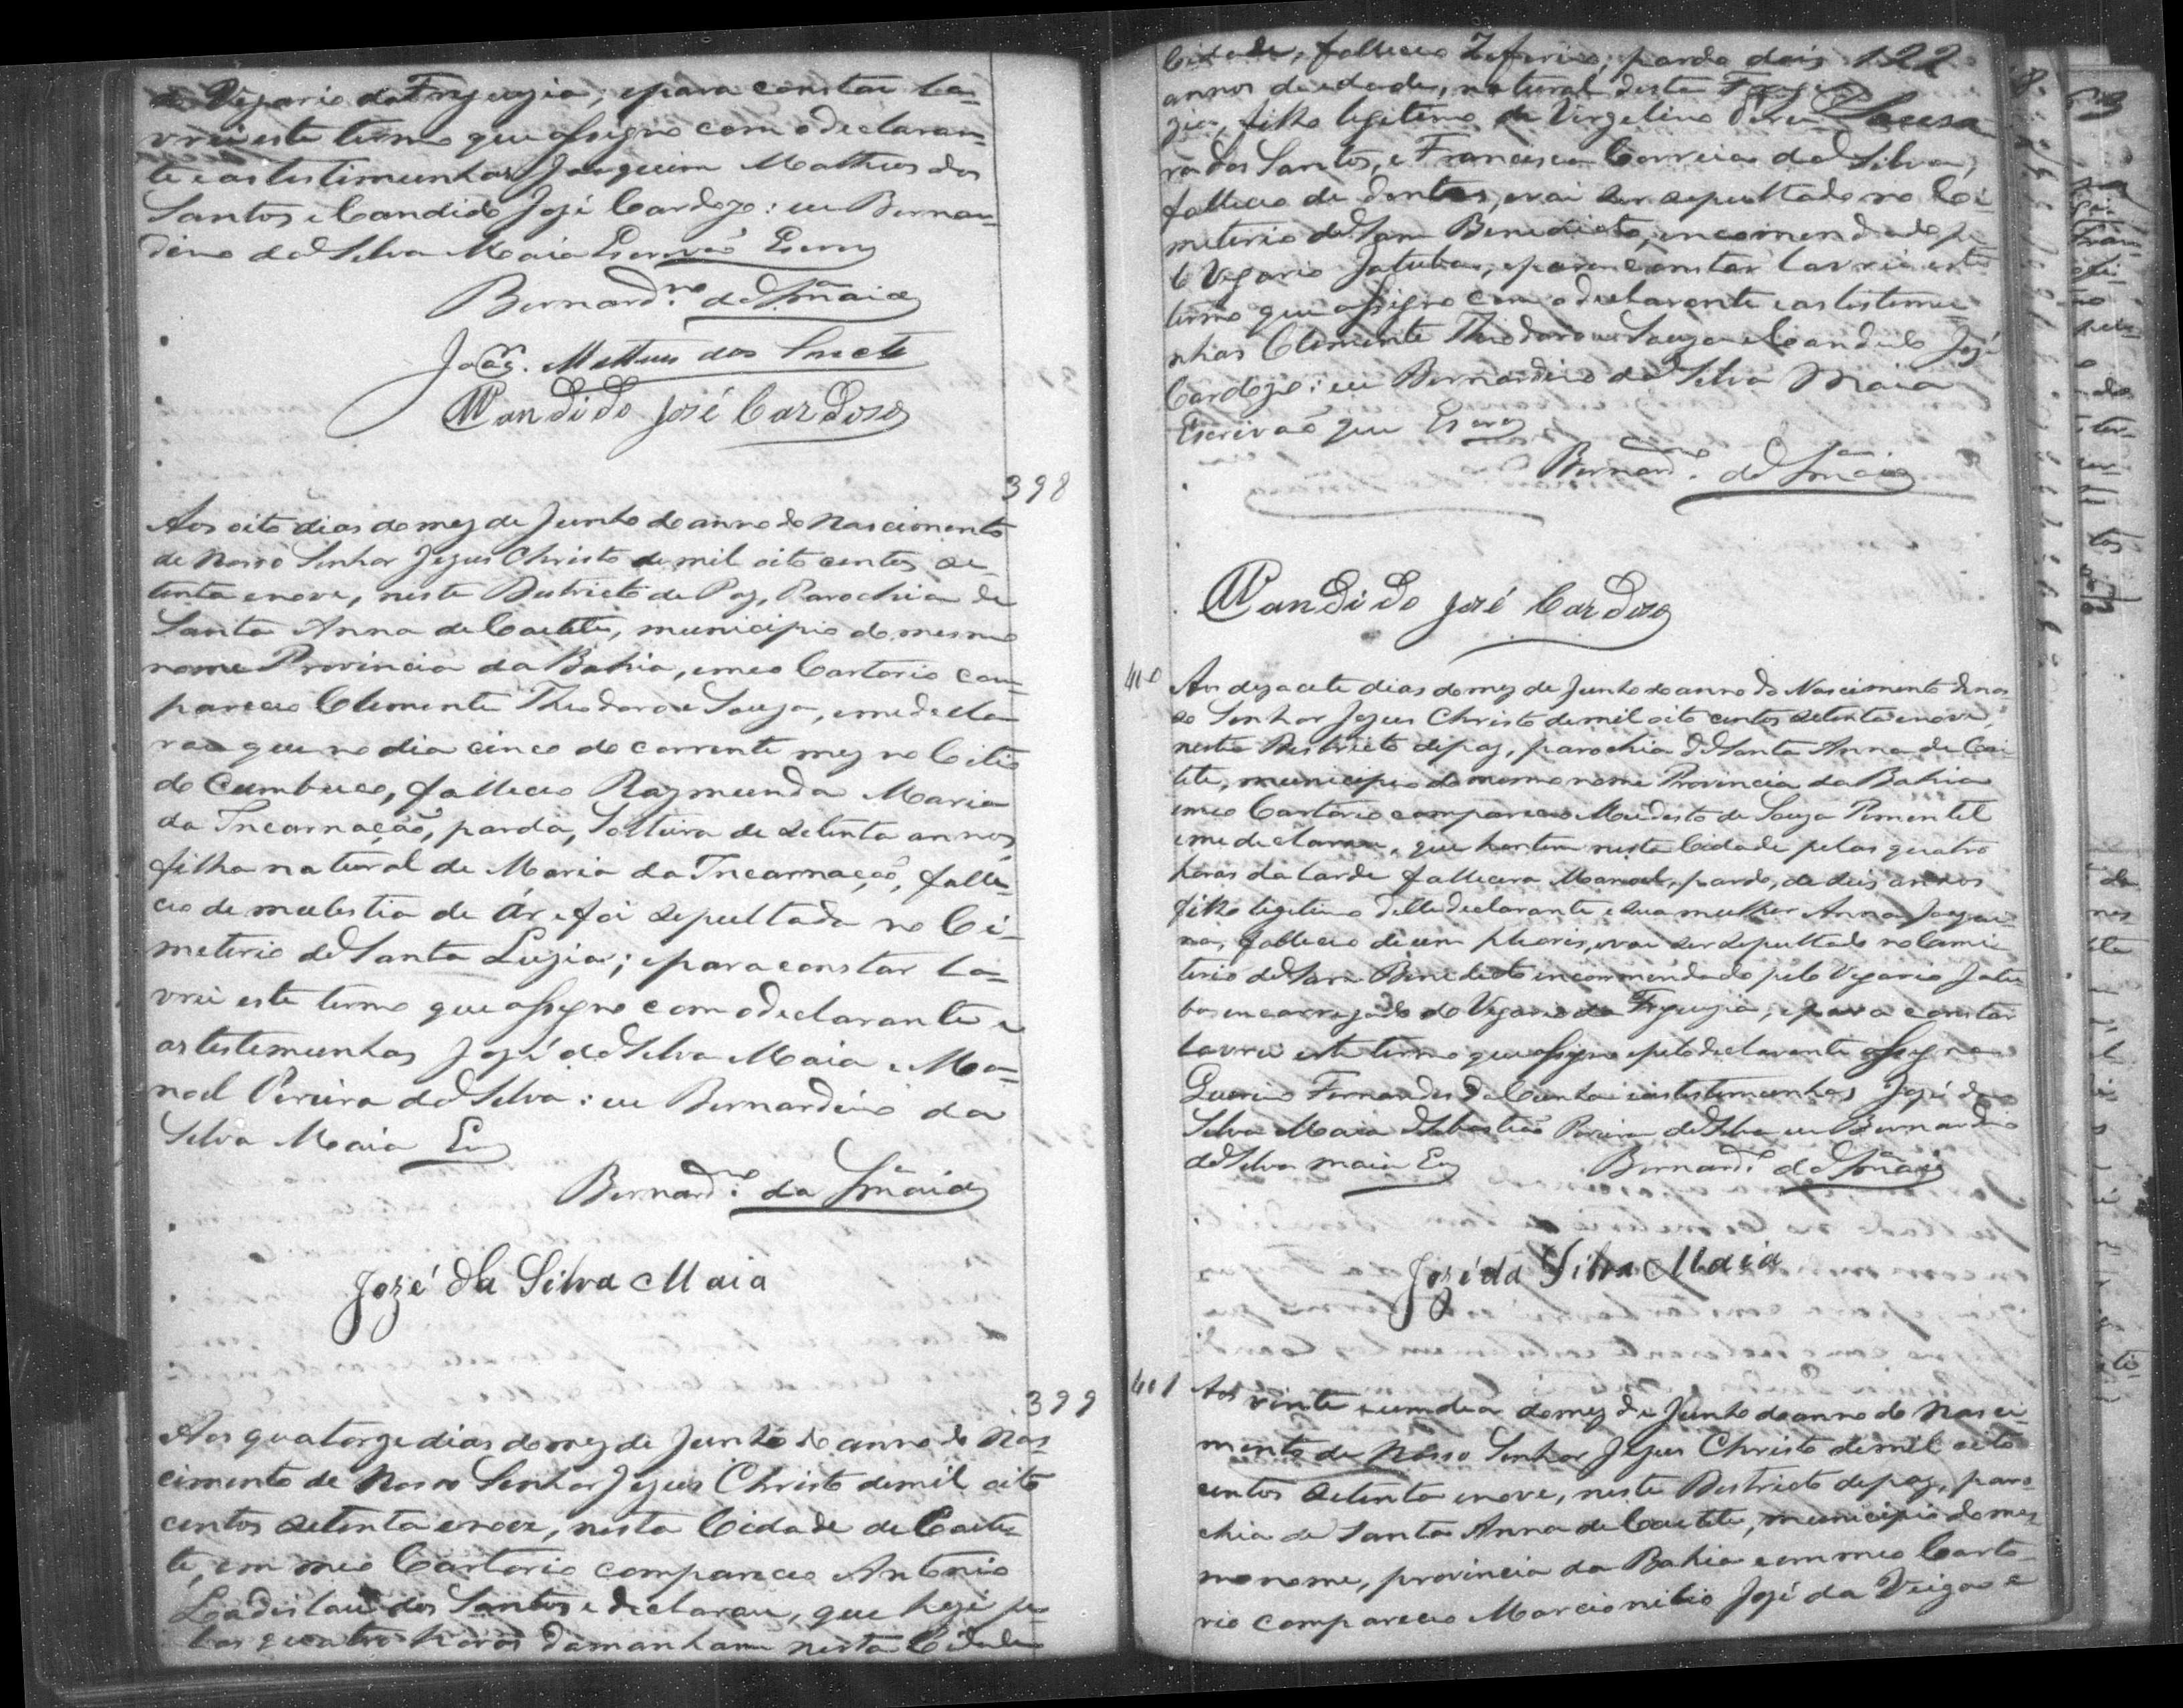 do Vegario da Freguezia, e para constar la-
vrei este termo que assigno com o declaran-
te e as testimunhas Joaquim Matheus dos
Santos e Candido José Cardozo: eu Bernar-
dino da Silva Maia Escrivão Escrevy
Bernard.no da S.a Maia
Joaq.m Matheus dos Sanctos
Candido José Cardoso
398
Aos oito dias do mez de Junho do anno do Nascimento
de Nosso Senhor Jezus Christo de mil oito centos se-
tenta e nove, neste Destricto de Paz, Parochia de
Santa Anna de Caetité, municipio do mesmo
nome Provincia da Bahia, em meo Cartorio com-
pareceo Clemente Theodoro e Souza, e me decla-
rou que no dia cinco do corrente mez no Citio
do Cambuco, falleceo Raymunda Maria
da Incarnação, parda, Solteira de setenta annos
filha natural de Maria da Incarnação, falle-
ceo de molestia de ár e foi sepultada no Ci-
meterio de Santa Luzia; e para constar la-
vrei este termo que assigno com o declarante e
as testemunhas José da Silva Maia e Ma-
noel Pereira da Silva: eu Bernardino da
Silva Maia Ey
Bernard.no da S.a Maia
Jozé da Silva Maia
399
Aos quatorze dias do mez de Junho do anno do Nas-
cimento de Nosso Senhor Jezus Christo de mil oito
centos setenta e nove, nesta Cidade de Caeti-
té, em meo Cartorio compareceo Antonio
Ladislau dos Santos e declarou, que hoje pe-
las quatro horas da manham nesta Cidade
Cidade, falleceo Zeferino, pardo dois 122
annos de edade, natural desta Fregue-
zia, filho legitimo de Virgelino
dos Santos, e Francisca Correia da Silva,
falleceo de dentes, e vai ser sepultado no Ci-
meterio de Sam Benedicto, encomendado pe-
lo Vegario Jatubá, e para constar lavrei este
termo que assigno com o declarante e as testemu-
nhas Clemente Theodoro e Souza e Candido José
Cardozo: eu Bernardino da Silva Maia
Escrivão que Escrevy
Bernard.no da S.a Maia
Candido José Cardoso
400
Aos dezacete dias do mez de Junho do anno do Nascimento de nos-
so Senhor Jezus Christo de mil oito centos setenta e nove,
neste Destricto de paz, parochia de Santa Anna de Cae-
tité, municipio do mesmo nome Provincia da Bahia
em meo Cartorio compareceo Modesto de Souza Pimentel
e me declarou, que hontem nesta Cidade pelas quatro
horas da tarde fallecera Manoel, pardo, de dois annos
filho legitimo delle declarante e sua mulher Anna Joaqui-
na, falleceo de um pleoris, e vai ser sepultado no Cemi-
terio de Sam Benedicto encommendado pelo Vegario Jatu-
bá encarregado do Vegario da Freguezia, e para constar
lavrei este termo que assigno e pelo declarante assigna
Querino Fernandes da Cunha e as testemunhas José da
Silva Maia e Sebastião Pereira da Silva eu Bernardino
da Silva Maia Ey Bernard.no da S.a Maia
Jozé da Silva Maia
401
Aos vinte e um dia do mez de Junho do anno do Nasci-
mento de Nosso Senhor Jezus Christo de mil oito
centos setenta e nove, neste Destricto de paz, paro-
chia de Santa Anna de Caetité, municipio do mes-
mo nome, provincia da Bahia e em meo Carto-
rio compareceo Marcionilio José da Veiga e